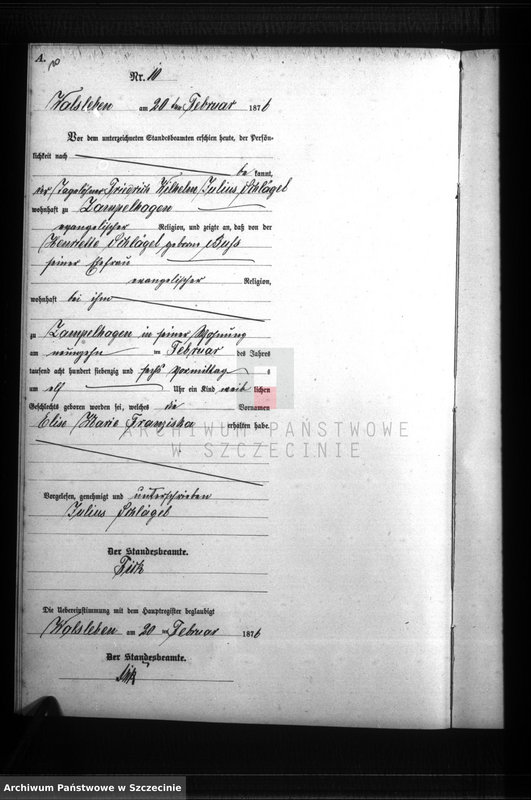 A.
10
Nr. 10
Walsleben am 20 ten Februar 1876
Vor dem unterzeichneten Standesbeamten erschien heute, der Persön-
lichkeit nach
be kannt,
der Tagelöhner Friedrich Wilhelm Julius Schlägel
wohnhaft zu Zampelhagen
evangelischer Religion, und zeigte an, daß von der
Henriette Schlägel geborne
seiner Ehefrau
evangelischer Religion,
wohnhaft bei ihm
zu Zampelhagen in seiner Wohnung
am neunzehn ten Februar des Jahres
tausend acht hundert siebenzig und sechs Vormittag s
um elf Uhr ein Kind weib lichen
Geschlechts geboren worden sei, welches die Vornamen
Elise Marie Franziska erhalten habe.
ARCHIWUM PAŃSTWOWE
W SZCZECINIE
Vorgelesen, genehmigt und unterschrieben
Julius Schlägel
Der Standesbeamte.
Die Uebereinstimmung mit dem Hauptregister beglaubigt
Walsleben am 20 ten Februar 1876
Der Standesbeamte.
Archiwum Państwowe w Szczecinie